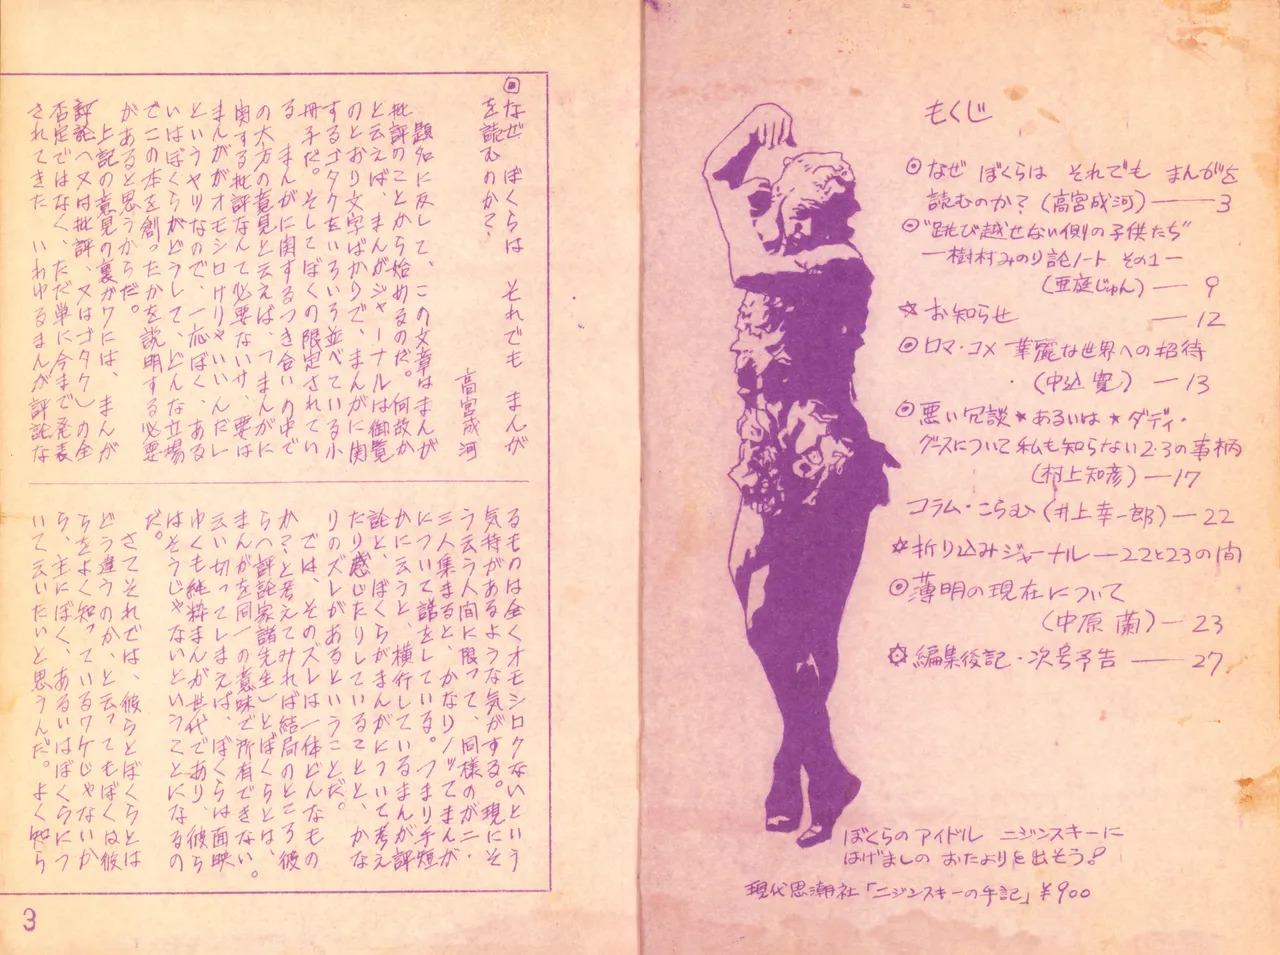 もくじ
◉なぜ ぼくらは それでも まんがを
読むのか?(高宮成河)――3
◉"跳び越せない側の子供たち"
―樹村みのり論ノート その1―
(亜庭じゅん)― 9
☆お知らせ ―12
◉ロマ・コメ 華麗な世界への招待
(中込 寛)―13
◉悪い冗談★あるいは★ダディ・
グースについて私も知らない2・3の事柄
(村上知彦)―17
コラム・こらむ(井上幸一郎)―22
☆折り込みジャーナル―22と23の間
◉薄明の現在について
(中原 蘭)―23
✡編集後記・次号予告 ――27
ぼくらのアイドル ニジンスキーに
はげましの おたよりを出そう!
現代思潮社「ニジンスキーの手記」¥900
◉なぜ ぼくらは それでも まんが
を読むのか?
高宮成河
題名に反して、この文章はまんが
批評のことから始めるのだ。何故か
と云えば、まんがジャーナルは御覧
のとおり文字ばかりで、まんがに関
するゴタクをいろいろ並べている小
冊子だ。そしてぼくの限定されてい
る まんがに関するつき合いの中で
の大方の意見と云えば、「まんがに
関する批評なんて必要ないサ、要は
まんががオモシロけりゃいいんだ」
というヤツなので、一応ぼく、ある
いはぼくらがどうして、どんな立場
でこの本を創ったかを説明する必要
があると思うからだ。
上記の意見の裏がワには、まんが
評論(又は批評、又はゴタク)の全
否定ではなく、ただ単に今まで発表
されてきた いわゆるまんが評論な
るものは全くオモシロクないという
気持があるような気がする。現にそ
う云う人間に限って、同様のが二・
三人集まると、かなりノッてまんが
について話をしている。つまり手短
かに云うと、横行しているまんが評
論と、ぼくらがまんがについて考え
たり感じたりしていることと、かな
りのズレがあるということだ。
では、そのズレは一体どんなもの
か?と考えてみれば結局のところ彼
ら(評論家諸先生)とぼくらとは、
まんがを同一の意味で所有できない。
云い切ってしまえば、ぼくらは面映
ゆくも純粋まんが世代であり、彼ら
はそうじゃないということになるの
だ。
さてそれでは、彼らとぼくらとは
どう違うのか、と云ってもぼくは彼
らをよく知っているワケじゃないか
ら、主にぼく、あるいはぼくらにつ
いて云いたいと思うんだ。よく知ら
3